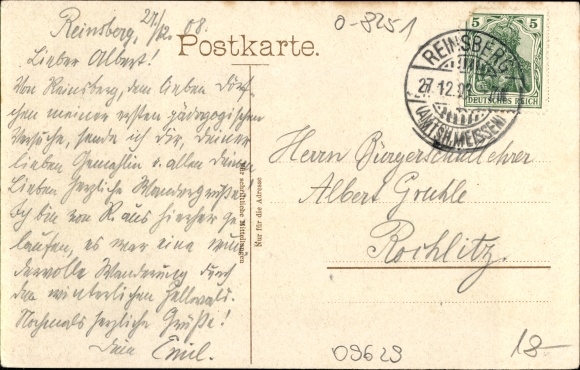 Reinsberg, 27./12. 08.
Lieber Albert!
Von Reinsberg, dem lieben Dörf-
chen meiner ersten pädagogischen
Versuche, sende ich dir, deiner
lieben Gemahlin u. allen deinen
Lieben herzliche Wandergrüße.
Ich bin von R. aus hierher ge-
laufen, es war eine wun-
dervolle Wanderung durch
den winterlichen Zellwald.
Nochmals herzliche Grüße!
Dein Emil.
Postkarte.
0-8251
5 5
DEUTSCHES REICH
REINSBERG
27.12.0
(AMTSH. MEISSEN)
Für schriftliche Mitteilungen
Nur für die Adresse
Herrn Bürgerschullehrer
Albert Gruhle
Rochlitz.
09629
18-